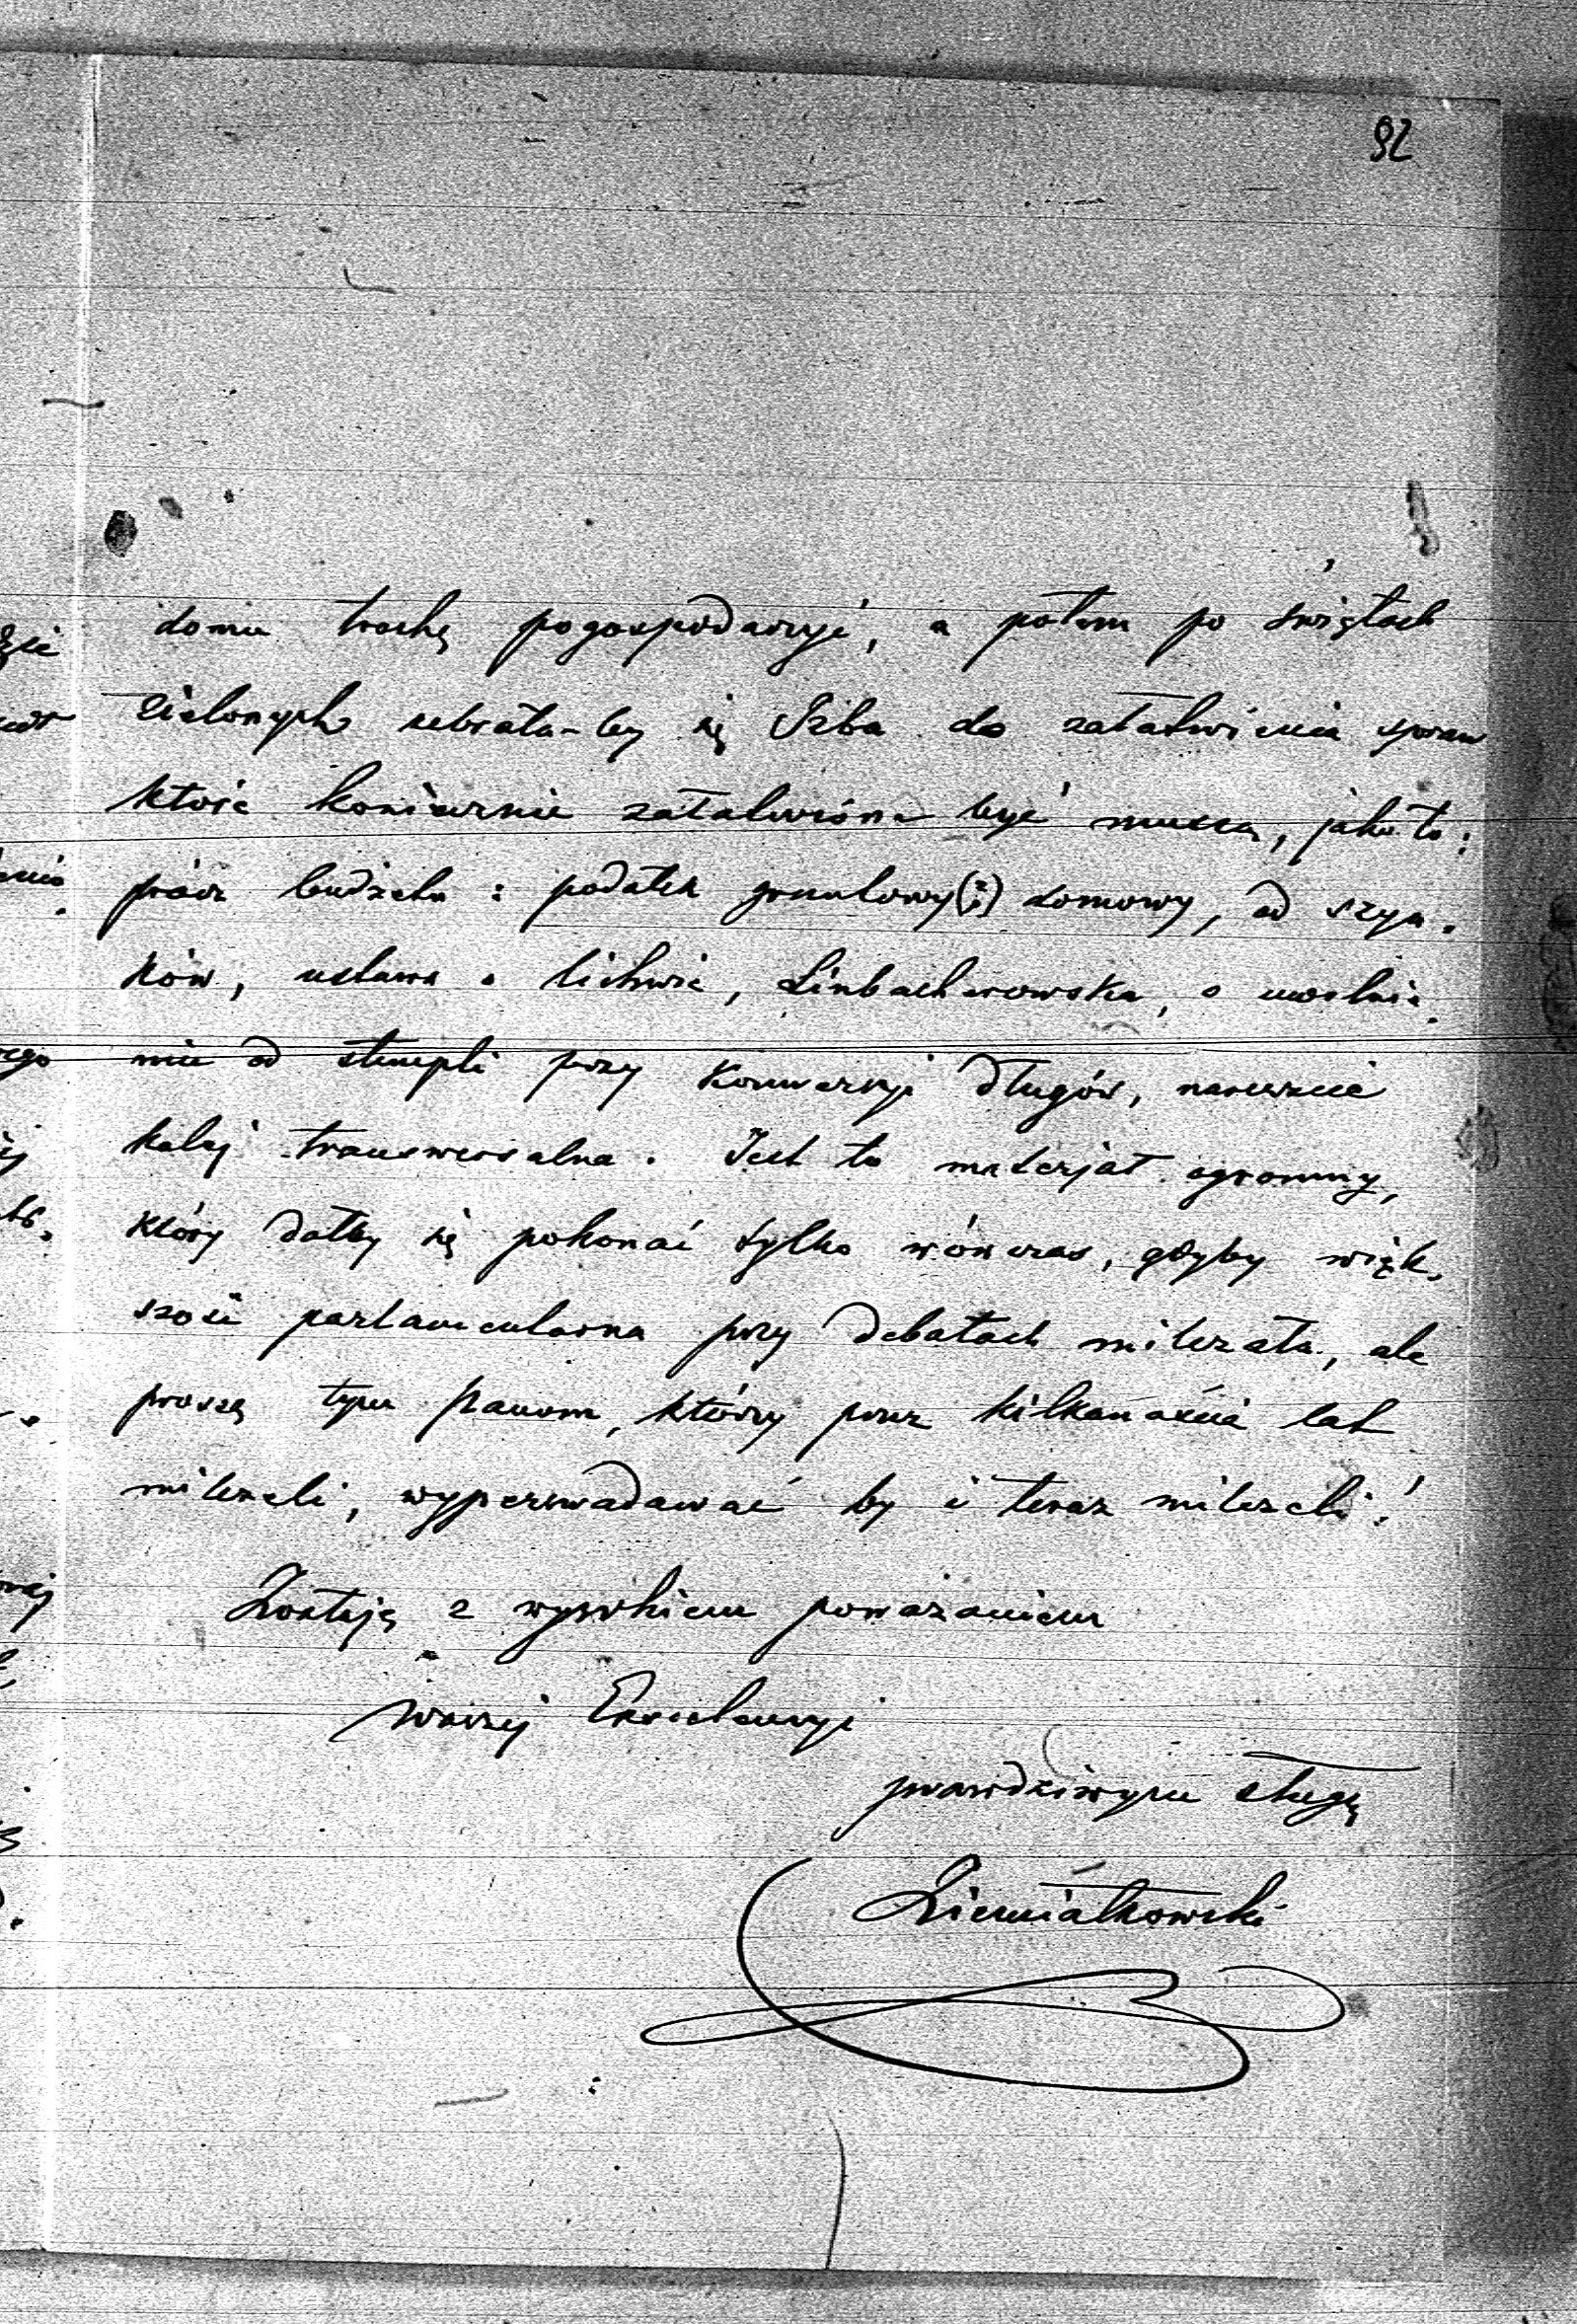 92
domu trochę pogospodaruje, a potem po świętach
zielonych zebrała-by się Izba do załatwienia spraw
które koniecznie załatwione być muszą, jako to:
prócz budżetu: podatek gruntowy (i) domowy, od szyn-
ków, ustawa o lichwie, Linbacherowska, o uwolnie-
niu od stempli przy konwersyi długów, nareszcie
kolej transwersalna. Jest to materjał ogromny,
który dałby się pokonać tylko wówczas, gdyby więk-
szość parlamentarna przy debatach milczała, ale
proszę tym Panom, którzy przez kilkanaście lat
milczeli, wyperswadować by i teraz milczeli!
Zostaję z wysokiem poważaniem
Waszej Excelencyi
prawdziwym sługą
Ziemiałkowski